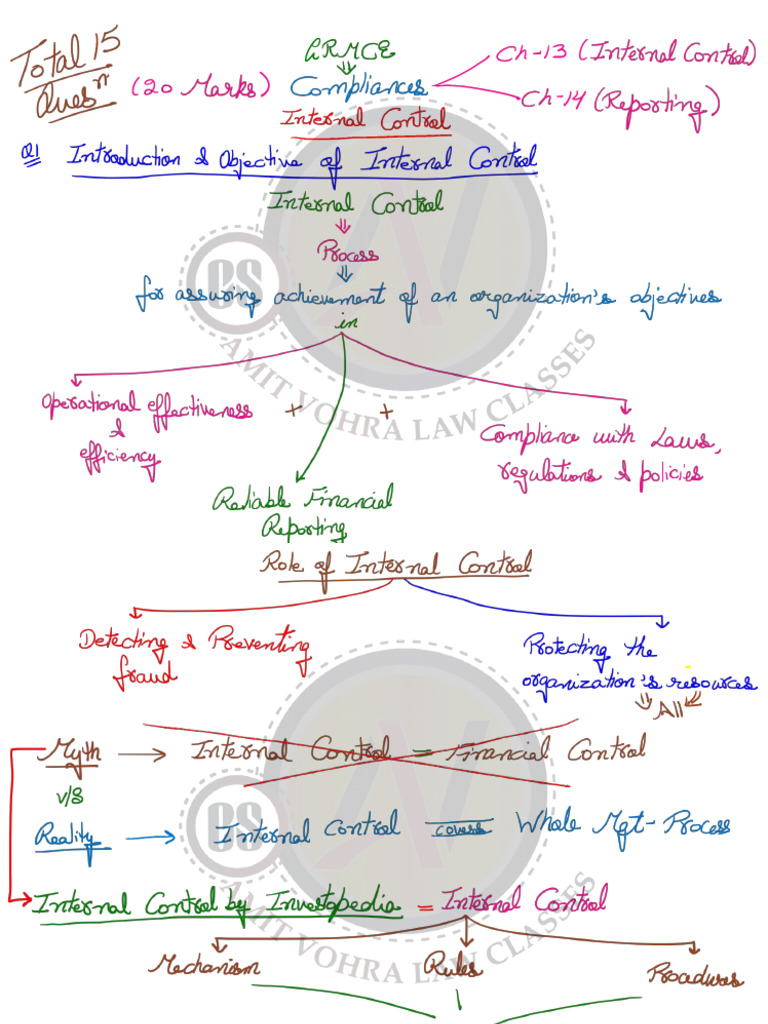 Total 15
Ques^n
GRMCE
(20 Marks) Compliances
Ch-13 (Internal Control)
Ch-14 (Reporting)
Internal Control
Q1 Introduction & Objective of Internal Control
Internal Control
Process
for assuring achievement of an organization's objectives
in
Operational effectiveness
&
efficiency
+ +
Compliance with Laws,
regulations & policies
Reliable Financial
Reporting
Role of Internal Control
Detecting & Preventing
fraud
Protecting the
organization's resources
All
Myth → Internal Control = Financial Control
v/s
Reality → Internal Control covers Whole Mgt-Process
Internal Control by Investopedia = Internal Control
Mechanism Rules Procedures
CS
AMIT VOHRA LAW CLASSES
CS
AMIT VOHRA LAW CLASSES